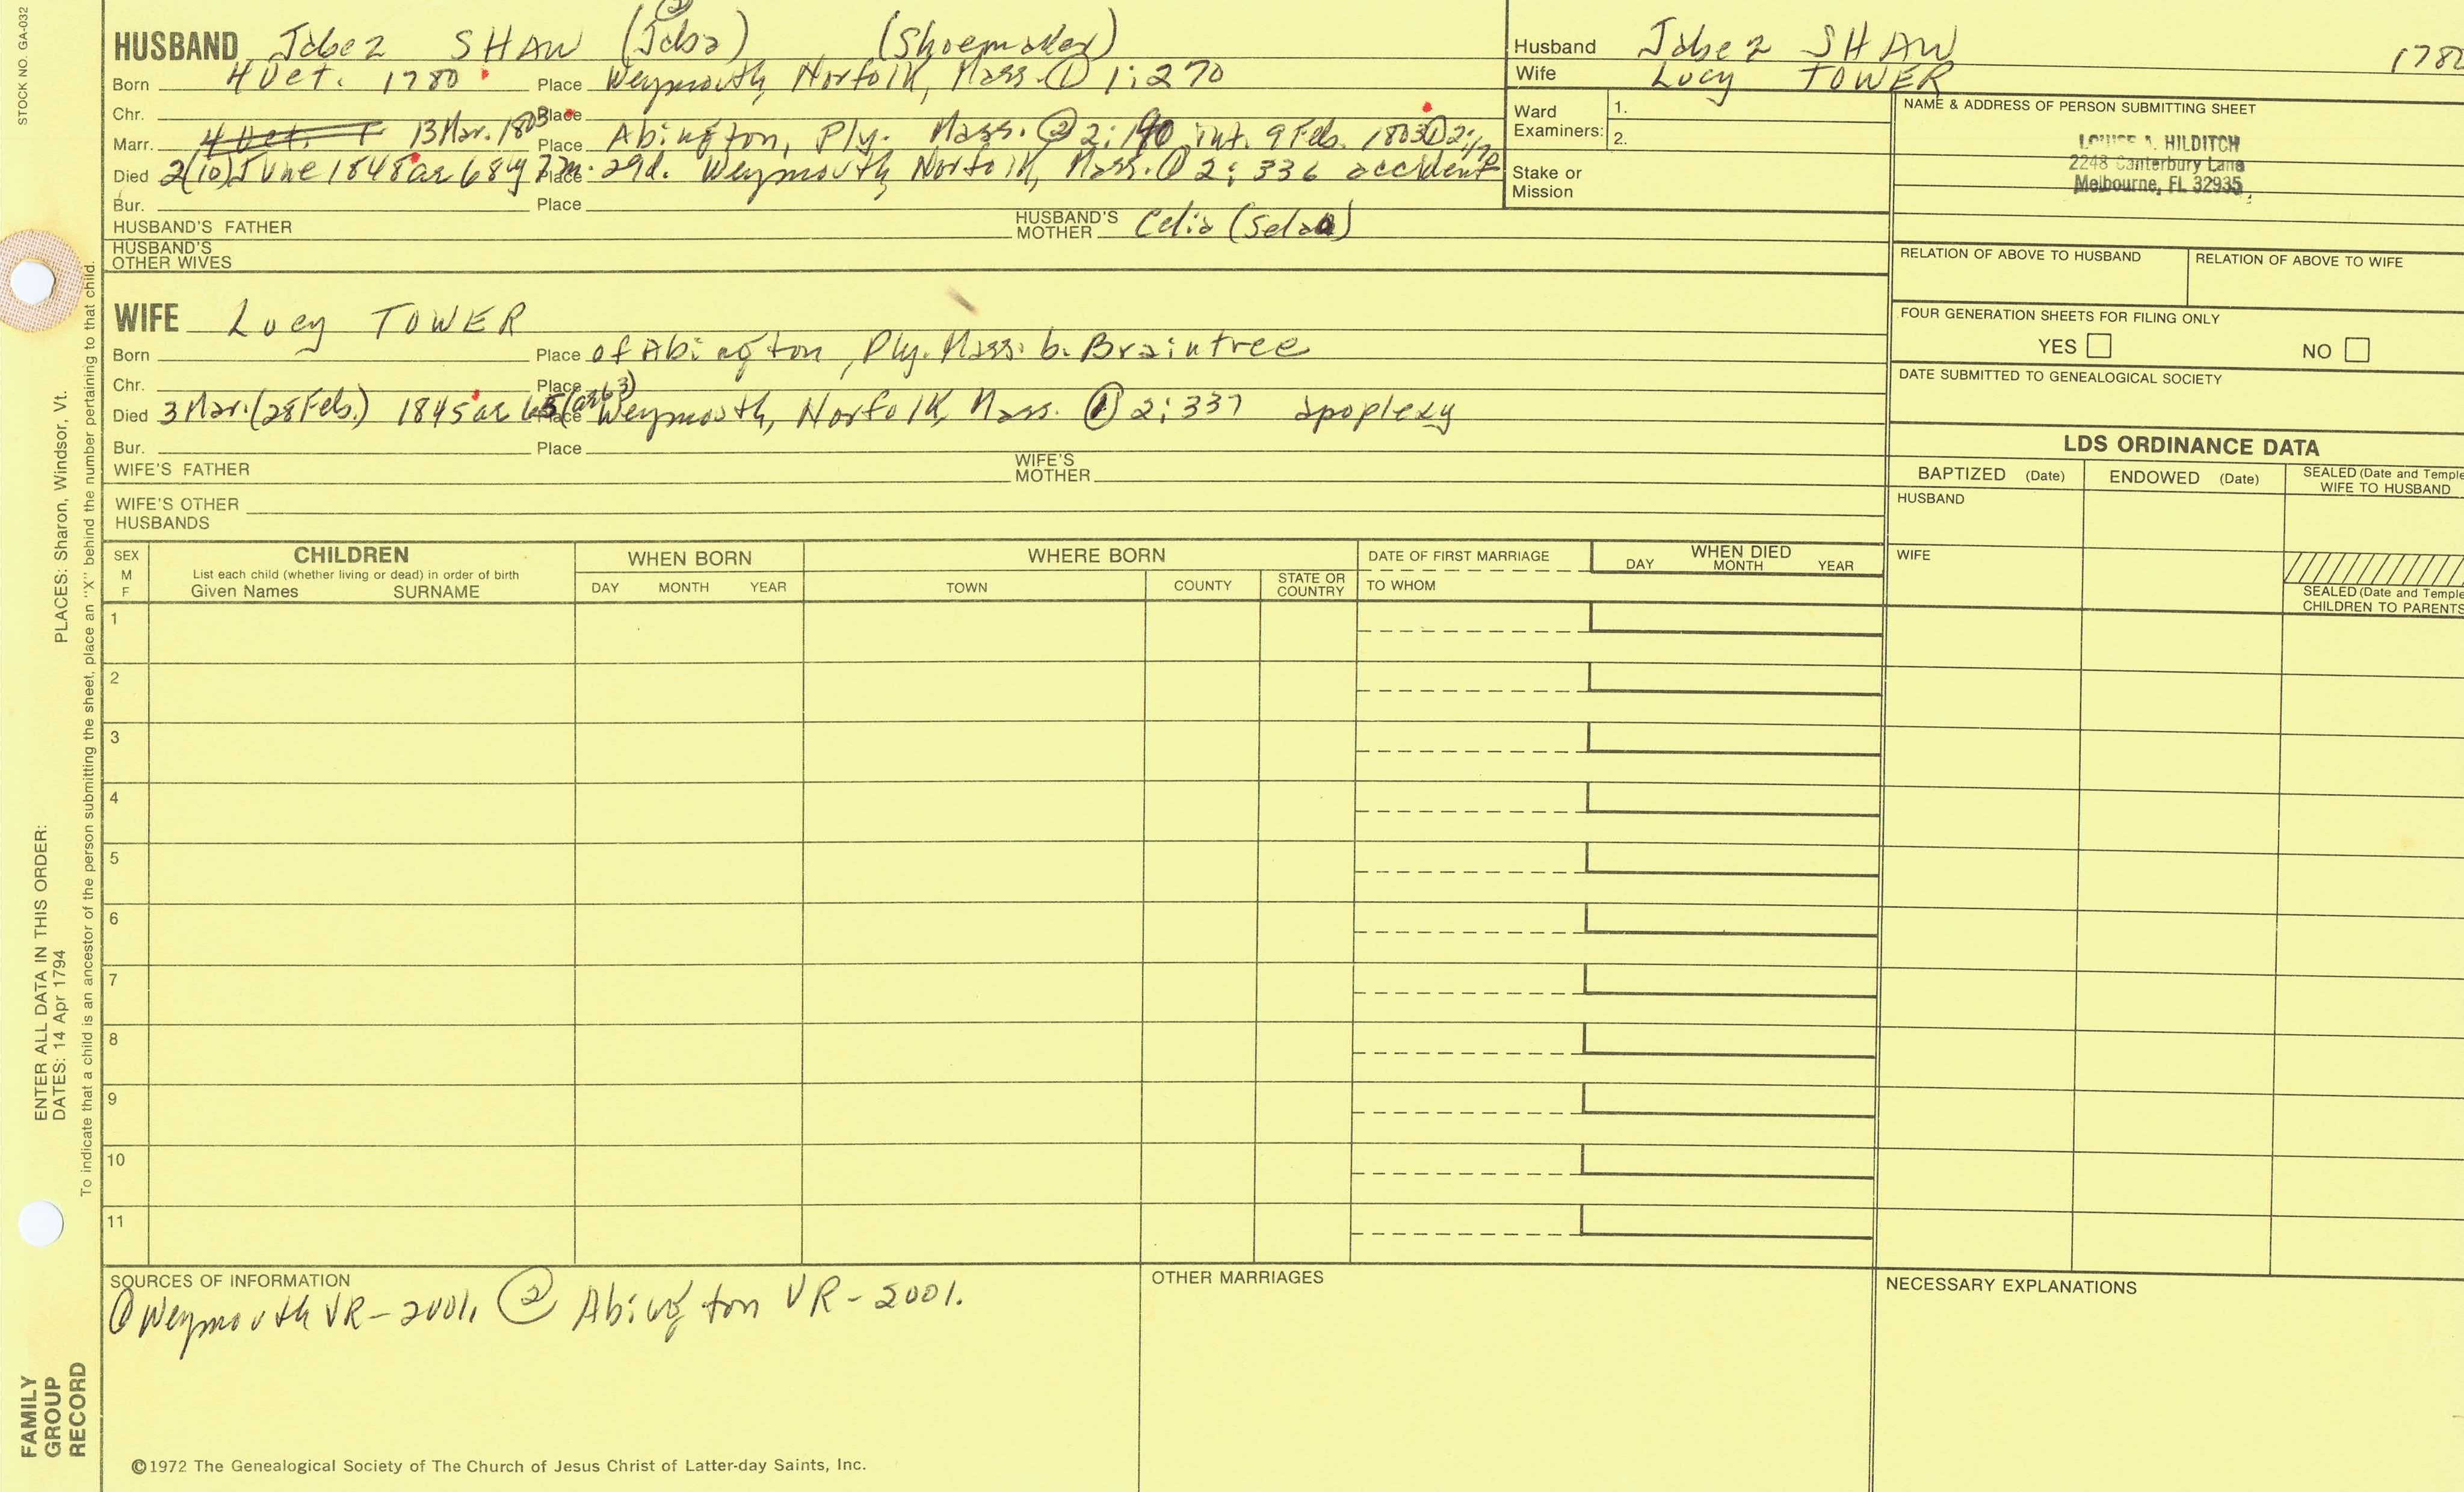 STOCK NO. GA-032
HUSBAND Jabez SHAW (Jaba) (Shoemaker)
②
Born 4 Oct. 1780 Place Weymouth, Norfolk, Mass. ① 1:270
Chr. Place
Marr. 4 Oct. 13 Mar. 1803 Place Abington, Ply. Mass. ② 2:190 int. 9 Feb. 1803 ① 2:170
Died 2(10) June 1848 ae 68y 7m. 29d. Place Weymouth, Norfolk, Mass. ① 2:336 accident
Bur. Place
HUSBAND'S FATHER HUSBAND'S MOTHER Celia (Sela)
HUSBAND'S OTHER WIVES
WIFE Lucy TOWER
Born Place of Abington, Ply. Mass. b. Braintree
Chr. Place
Died 3 Mar. (28 Feb.) 1845 ae 65 (ae 63) Place Weymouth, Norfolk, Mass. ① 2:337 apoplexy
Bur. Place
WIFE'S FATHER WIFE'S MOTHER
WIFE'S OTHER HUSBANDS
Husband Jabez SHAW 1780
Wife Lucy TOWER
Ward Examiners: 1.
2.
Stake or Mission
NAME & ADDRESS OF PERSON SUBMITTING SHEET
LOUISE A. HILDITCH
2248 Canterbury Lane
Melbourne, FL 32935
RELATION OF ABOVE TO HUSBAND RELATION OF ABOVE TO WIFE
FOUR GENERATION SHEETS FOR FILING ONLY
YES NO
DATE SUBMITTED TO GENEALOGICAL SOCIETY
LDS ORDINANCE DATA
BAPTIZED (Date) ENDOWED (Date) SEALED (Date and Temple
WIFE TO HUSBAND
HUSBAND
WIFE
SEALED (Date and Temple
CHILDREN TO PARENTS
SEX M F CHILDREN WHEN BORN WHERE BORN DATE OF FIRST MARRIAGE WHEN DIED
List each child (whether living or dead) in order of birth
Given Names SURNAME DAY MONTH YEAR TOWN COUNTY STATE OR COUNTRY TO WHOM DAY MONTH YEAR
1
2
3
4
5
6
7
8
9
10
11
SOURCES OF INFORMATION OTHER MARRIAGES NECESSARY EXPLANATIONS
① Weymouth VR-2001. ② Abington VR-2001.
©1972 The Genealogical Society of The Church of Jesus Christ of Latter-day Saints, Inc.
FAMILY
GROUP
RECORD
ENTER ALL DATA IN THIS ORDER:
DATES: 14 Apr 1794 PLACES: Sharon, Windsor, Vt.
To indicate that a child is an ancestor of the person submitting the sheet, place an "X" behind the number pertaining to that child.